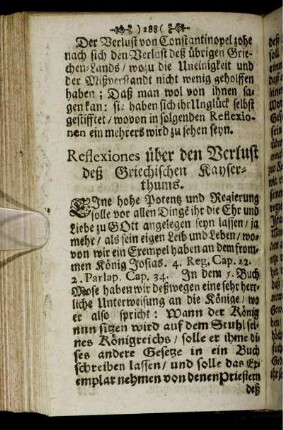 )288(
Der Verlust von Constantinopel zohe
nach sich den Verlust deß übrigen Grie-
chen-Lands / wozu die Uneinigkeit und
der Mißverstandt nicht wenig geholffen
haben; Daß man wol von ihnen sa-
gen kan: sie haben sich ihr Unglück selbst
gestifftet / wovon in folgenden Reflexio-
nen ein mehrers wird zu sehen seyn.
Reflexiones über den Verlust
deß Griechischen Kayser-
thums.
EIne hohe Potentz und Regierung
solle vor allen Dingē ihr die Ehr und
Liebe zu GOtt angelegen seyn lassen / ja
mehr / als sein eigen Leib und Leben / wo-
von wir ein Exempel haben an dem from-
men König Josias. 4. Reg. Cap. 22.
2. Parlap. Cap. 34. In dem 5. Buch
Mose haben wir deßwegen eine sehr herr-
liche Unterweisung an die Könige / wo
er also spricht: Wann der König
nun sitzen wird auf dem Stuhl sei-
nes Königreichs / solle er ihme di-
ses andere Gesetze in ein Buch
schreiben lassen / und solle das Ex-
emplar nehmen von denen Priestern
deß